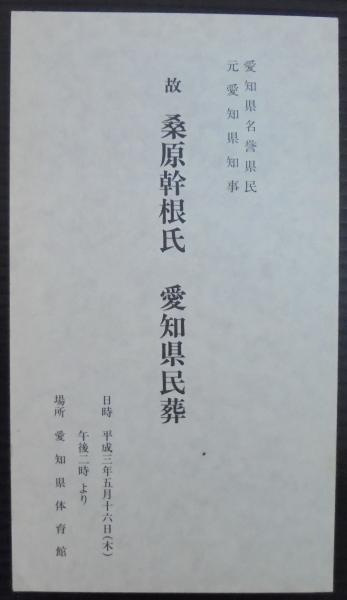 愛知県名誉県民
元愛知県知事
故 桑原幹根氏 愛知県民葬
日時 平成三年五月十六日(木)
午後二時より
場所 愛知県体育館